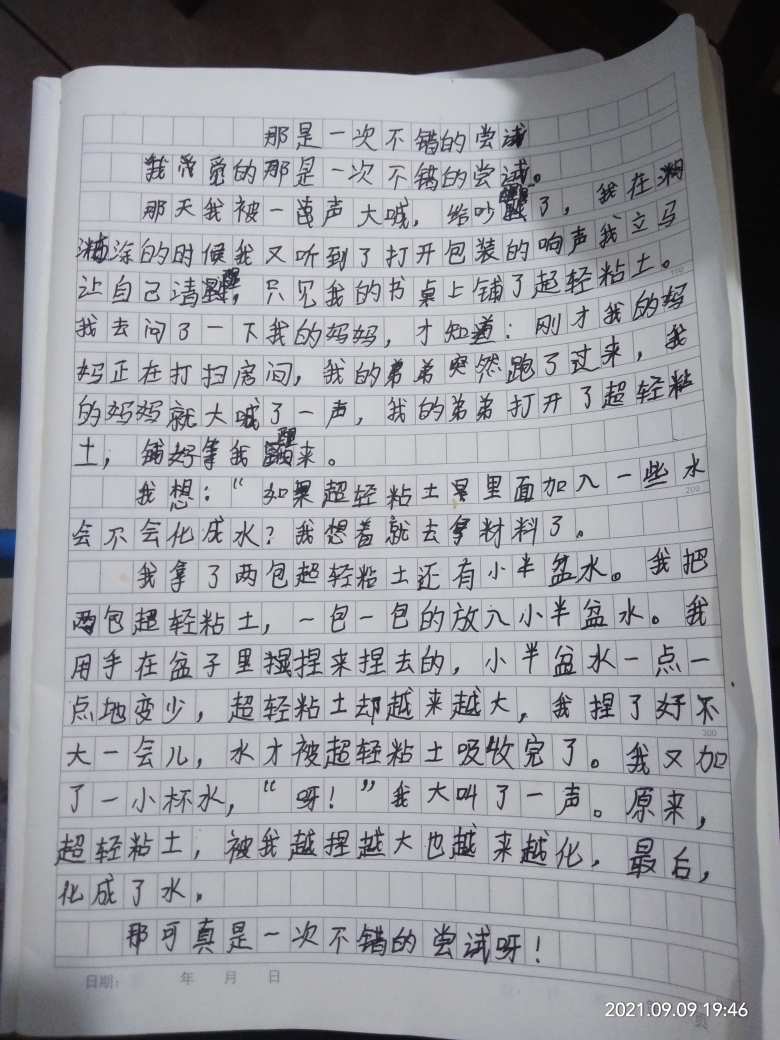 那是一次不错的尝试
我觉的那是一次不错的尝试。
那天我被一声大喊,给吵醒了,我在糊
涂的时候我又听到了打开包装的响声我立马
让自己清醒,只见我的书桌上铺了超轻粘土。
我去问了一下我的妈妈,才知道:刚才我的妈
妈正在打扫房间,我的弟弟突然跑了过来,我
的妈妈就大喊了一声,我的弟弟打开了超轻粘
土,铺好等我醒来。
我想:“如果超轻粘土里面加入一些水
会不会化成水?我想着就去拿材料了。
我拿了两包超轻粘土还有小半盆水。我把
两包超轻粘土,一包一包的放入小半盆水。我
用手在盆子里捏来捏去的,小半盆水一点一
点地变少,超轻粘土却越来越大,我捏了好不
大一会儿,水才被超轻粘土吸收完了。我又加
了一小杯水,“呀!”我大叫了一声。原来,
超轻粘土,被我越捏越大也越来越化,最后,
化成了水。
那可真是一次不错的尝试呀!
日期: 年 月 日
100
200
300
2021.09.09 19:46